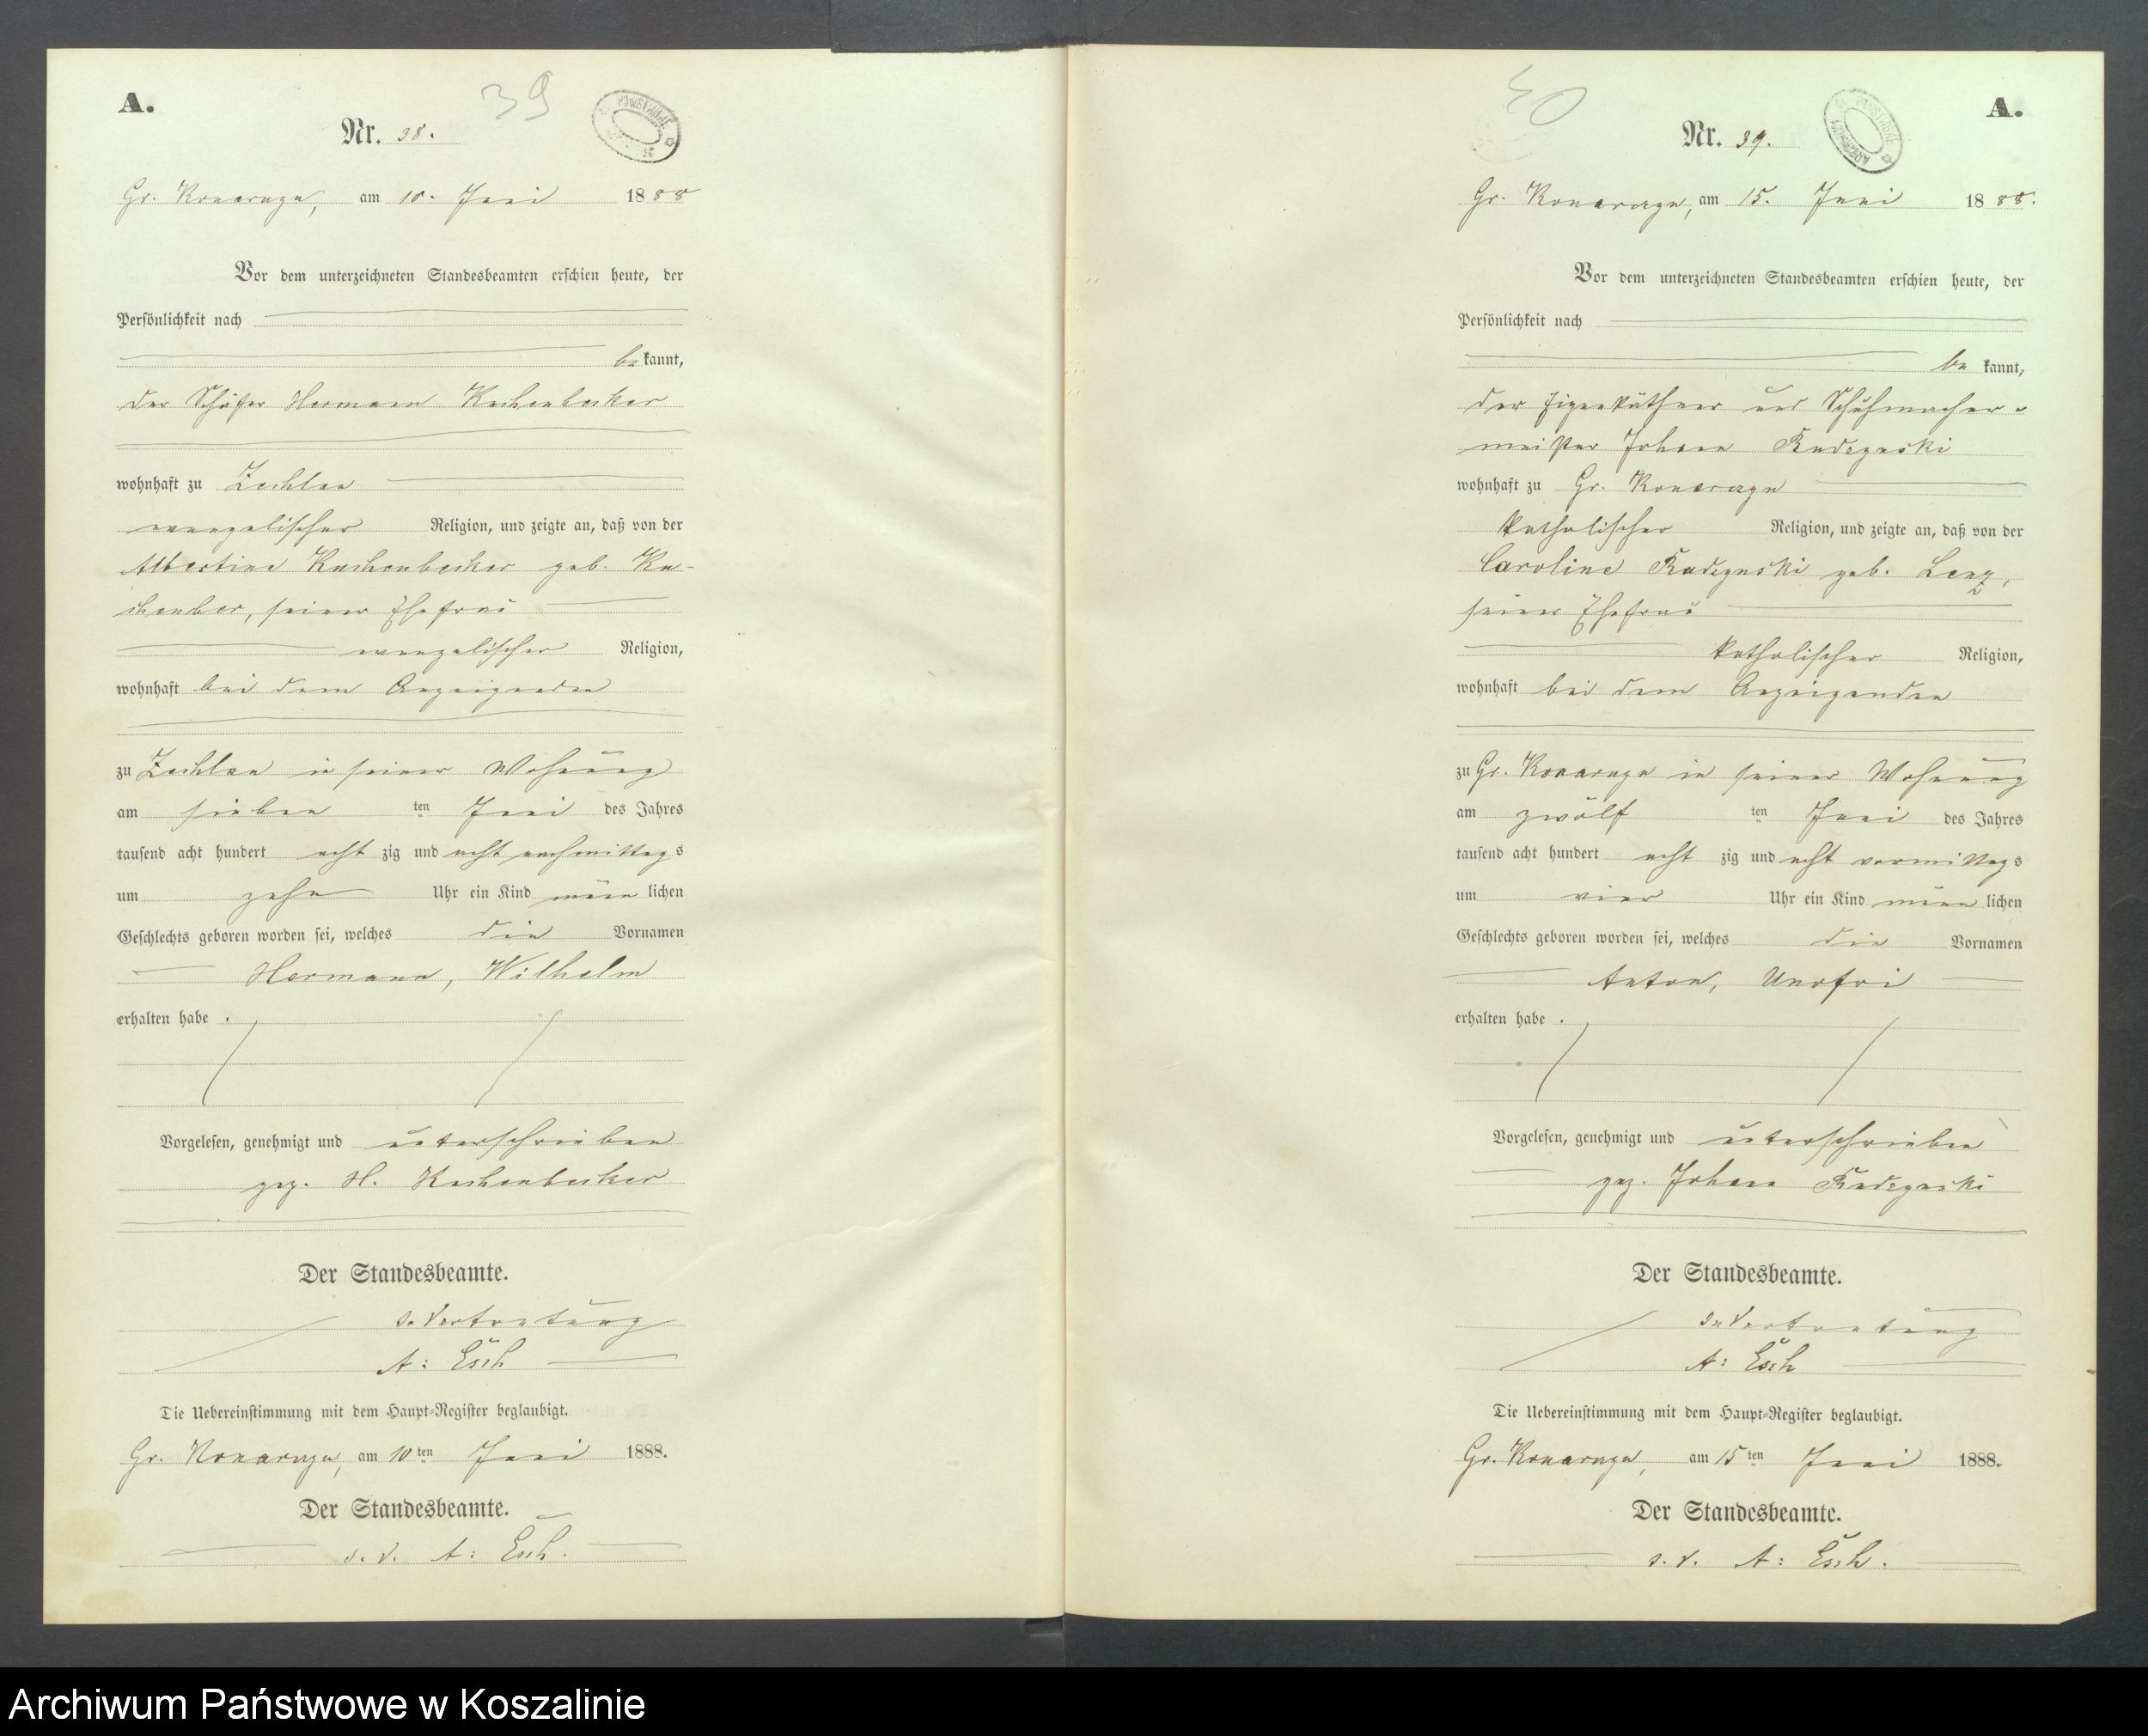 39
A.
Nr. 38.
Gr. Konarzyn, am 10. Juni 1888
Vor dem unterzeichneten Standesbeamten erschien heute, der
Persönlichkeit nach
be kannt,
der Schäfer Hermann Kuchenbecker
wohnhaft zu Zechlau
evangelischer Religion, und zeigte an, daß von der
Albertine Kuchenbecker geb. Ku-
seiner Ehefrau
evangelischer Religion,
wohnhaft bei dem Anzeigenden
zu Zechlau in seiner Wohnung
am sieben ten Juni des Jahres
tausend acht hundert acht zig und acht nachmittags
um zehn Uhr ein Kind männ lichen
Geschlechts geboren worden sei, welches die Vornamen
Hermann, Wilhelm
erhalten habe.
Vorgelesen, genehmigt und unterschrieben
gez. H. Kuchenbecker
Der Standesbeamte.
Vertretung
A: Esch
Die Uebereinstimmung mit dem Haupt-Register beglaubigt.
Gr. Konarzyn, am 10 ten Juni 1888.
Der Standesbeamte.
A: Esch.
40
A.
Nr. 39.
Gr. Konarzyn, am 15. Juni 1888.
Vor dem unterzeichneten Standesbeamten erschien heute, der
Persönlichkeit nach
be kannt,
der Eigenkäthner und Schuhmacher-
meister Johann
wohnhaft zu Gr. Konarzyn
katholischer Religion, und zeigte an, daß von der
Caroline geb. Lenz,
seiner Ehefrau
katholischer Religion,
wohnhaft bei dem Anzeigenden
zu Gr. Konarzyn in seiner Wohnung
am zwölf ten Juni des Jahres
tausend acht hundert acht zig und acht vormittags
um vier Uhr ein Kind männ lichen
Geschlechts geboren worden sei, welches die Vornamen
Anton,
erhalten habe.
Vorgelesen, genehmigt und unterschrieben
gez. Johann
Der Standesbeamte.
Vertretung
A: Esch
Die Uebereinstimmung mit dem Haupt-Register beglaubigt.
Gr. Konarzyn, am 15 ten Juni 1888.
Der Standesbeamte.
A: Esch.
Archiwum Państwowe w Koszalinie